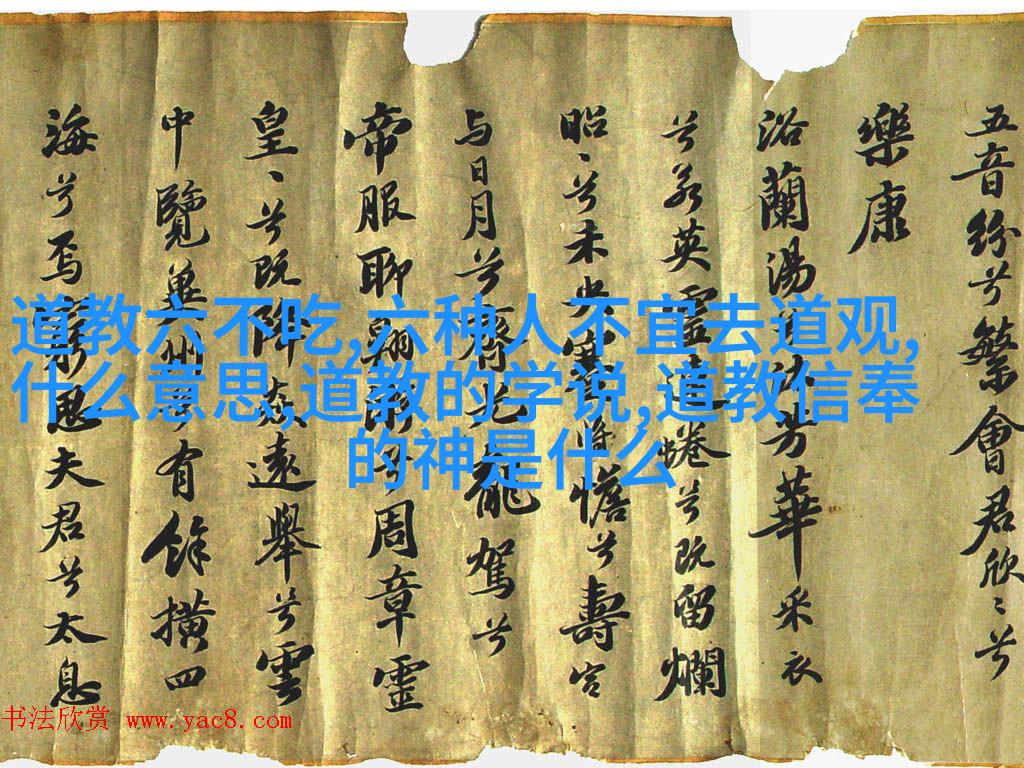 五音紛兮繁會君欣〻兮
樂康
浴蘭湯兮沐芳華采衣
兮若英靈連蜷兮既留爛
昭〻兮未央蹇將憺兮壽宮
与日月兮齊光龍駕兮
帝服聊翱游兮周章靈
皇〻兮既降猋遠舉兮雲
中覽冀州兮有餘橫四
海兮焉窮思夫君兮太息
道教六不吃,六种人不宜去道观,
什么意思,道教的学说,道教信奉
的神是什么
书法欣赏 www.yac8.com